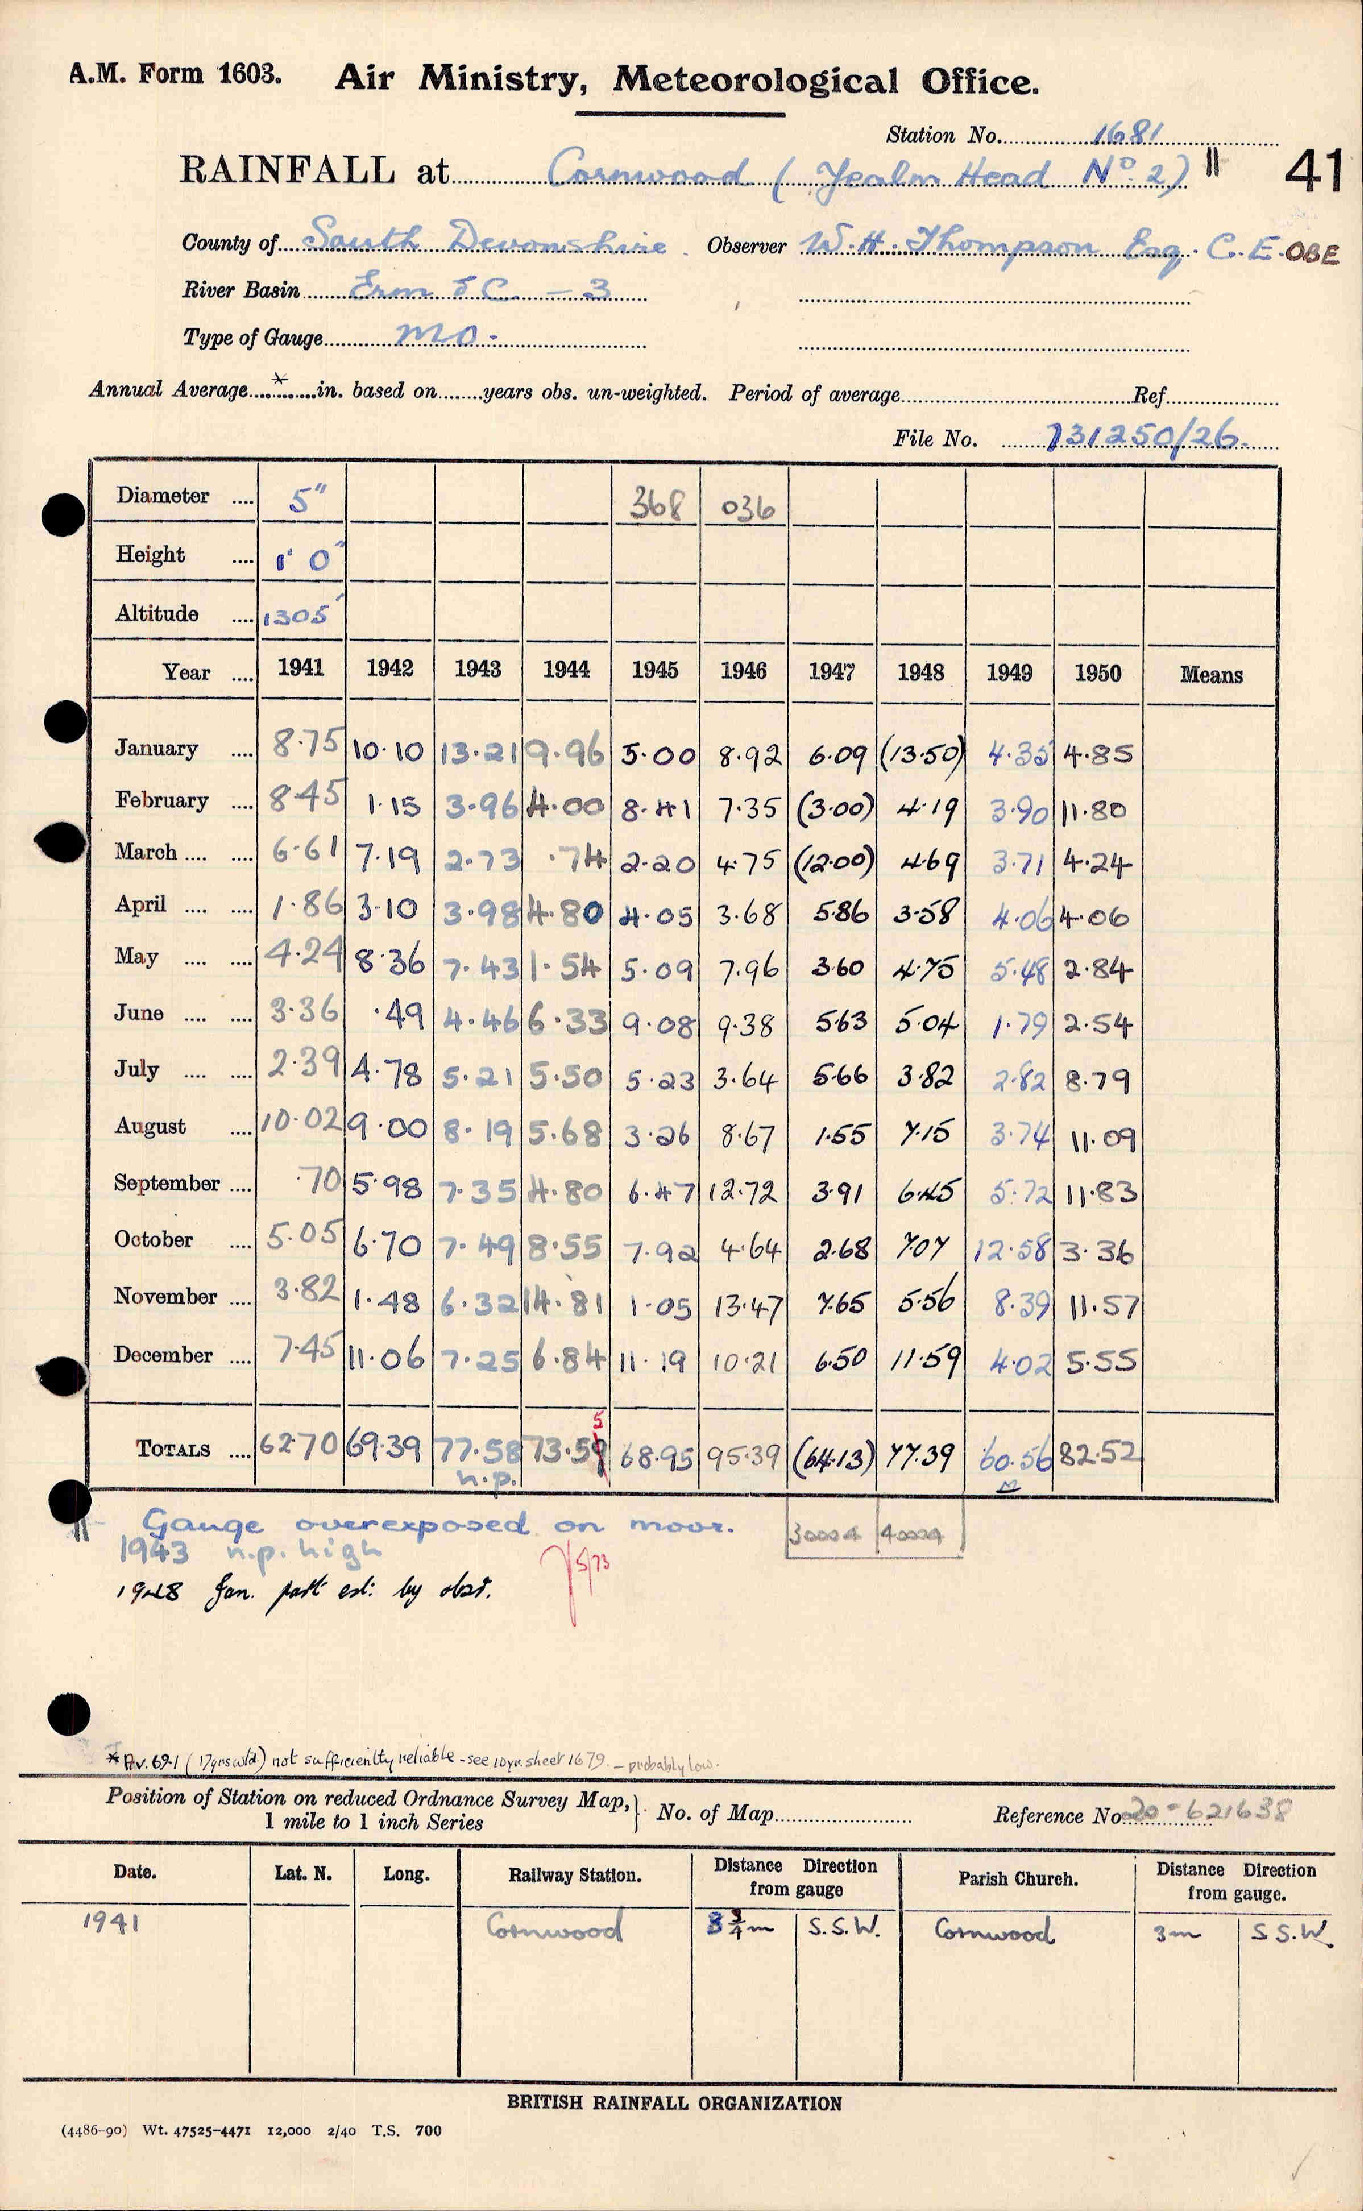 A.M. Form 1603. Air Ministry, Meteorological Office.
Station No. 1681
RAINFALL at Cornwood (Yealm Head No. 2) || 41
County of South Devonshire. Observer W. H. Thompson Esq. C.E. OBE
River Basin Erm &C - 3
Type of Gauge MO.
Annual Average * in. based on years obs. un-weighted. Period of average Ref
File No. 731250/26.
Diameter 5" 368 036
Height 1' 0"
Altitude 1305'
Year 1941 1942 1943 1944 1945 1946 1947 1948 1949 1950 Means
January 8.75 10.10 13.21 9.96 5.00 8.92 6.09 (13.50) 4.35 4.85
February 8.45 1.15 3.96 4.00 8.41 7.35 (3.00) 4.19 3.90 11.80
March 6.61 7.19 2.73 .74 2.20 4.75 (12.00) 4.69 3.71 4.24
April 1.86 3.10 3.98 4.80 4.05 3.68 5.86 3.58 4.06 4.06
May 4.24 8.36 7.43 1.54 5.09 7.96 3.60 4.75 5.48 2.84
June 3.36 .49 4.46 6.33 9.08 9.38 5.63 5.04 1.79 2.54
July 2.39 4.78 5.21 5.50 5.23 3.64 5.66 3.82 2.82 8.79
August 10.02 9.00 8.19 5.68 3.26 8.67 1.55 7.15 3.74 11.09
September .70 5.98 7.35 4.80 6.47 12.72 3.91 6.45 5.72 11.83
October 5.05 6.70 7.49 8.55 7.92 4.64 2.68 7.07 12.58 3.36
November 3.82 1.48 6.32 14.81 1.05 13.47 7.65 5.56 8.39 11.57
December 7.45 11.06 7.25 6.84 11.19 10.21 6.50 11.59 4.02 5.55
5
TOTALS 62.70 69.39 77.58 73.59 68.95 95.39 (64.13) 77.39 60.56 82.52
n.p. M
|| Gauge overexposed on moor.
1943 n.p. high
5/73
1948 Jan. part est: by obsr.
*Av. 69.1 (17yrs wtd) not sufficiently reliable - see 10yr. sheet 1679 - probably low.
Position of Station on reduced Ordnance Survey Map, 1 mile to 1 inch Series } No. of Map Reference No. 20-621638
Date. Lat. N. Long. Railway Station. Distance Direction from gauge Parish Church. Distance Direction from gauge.
1941 Cornwood 3 3/4 m S.S.W. Cornwood 3m S.S.W.
BRITISH RAINFALL ORGANIZATION
(4486-90) Wt. 47525-4471 12,000 2/40 T.S. 700